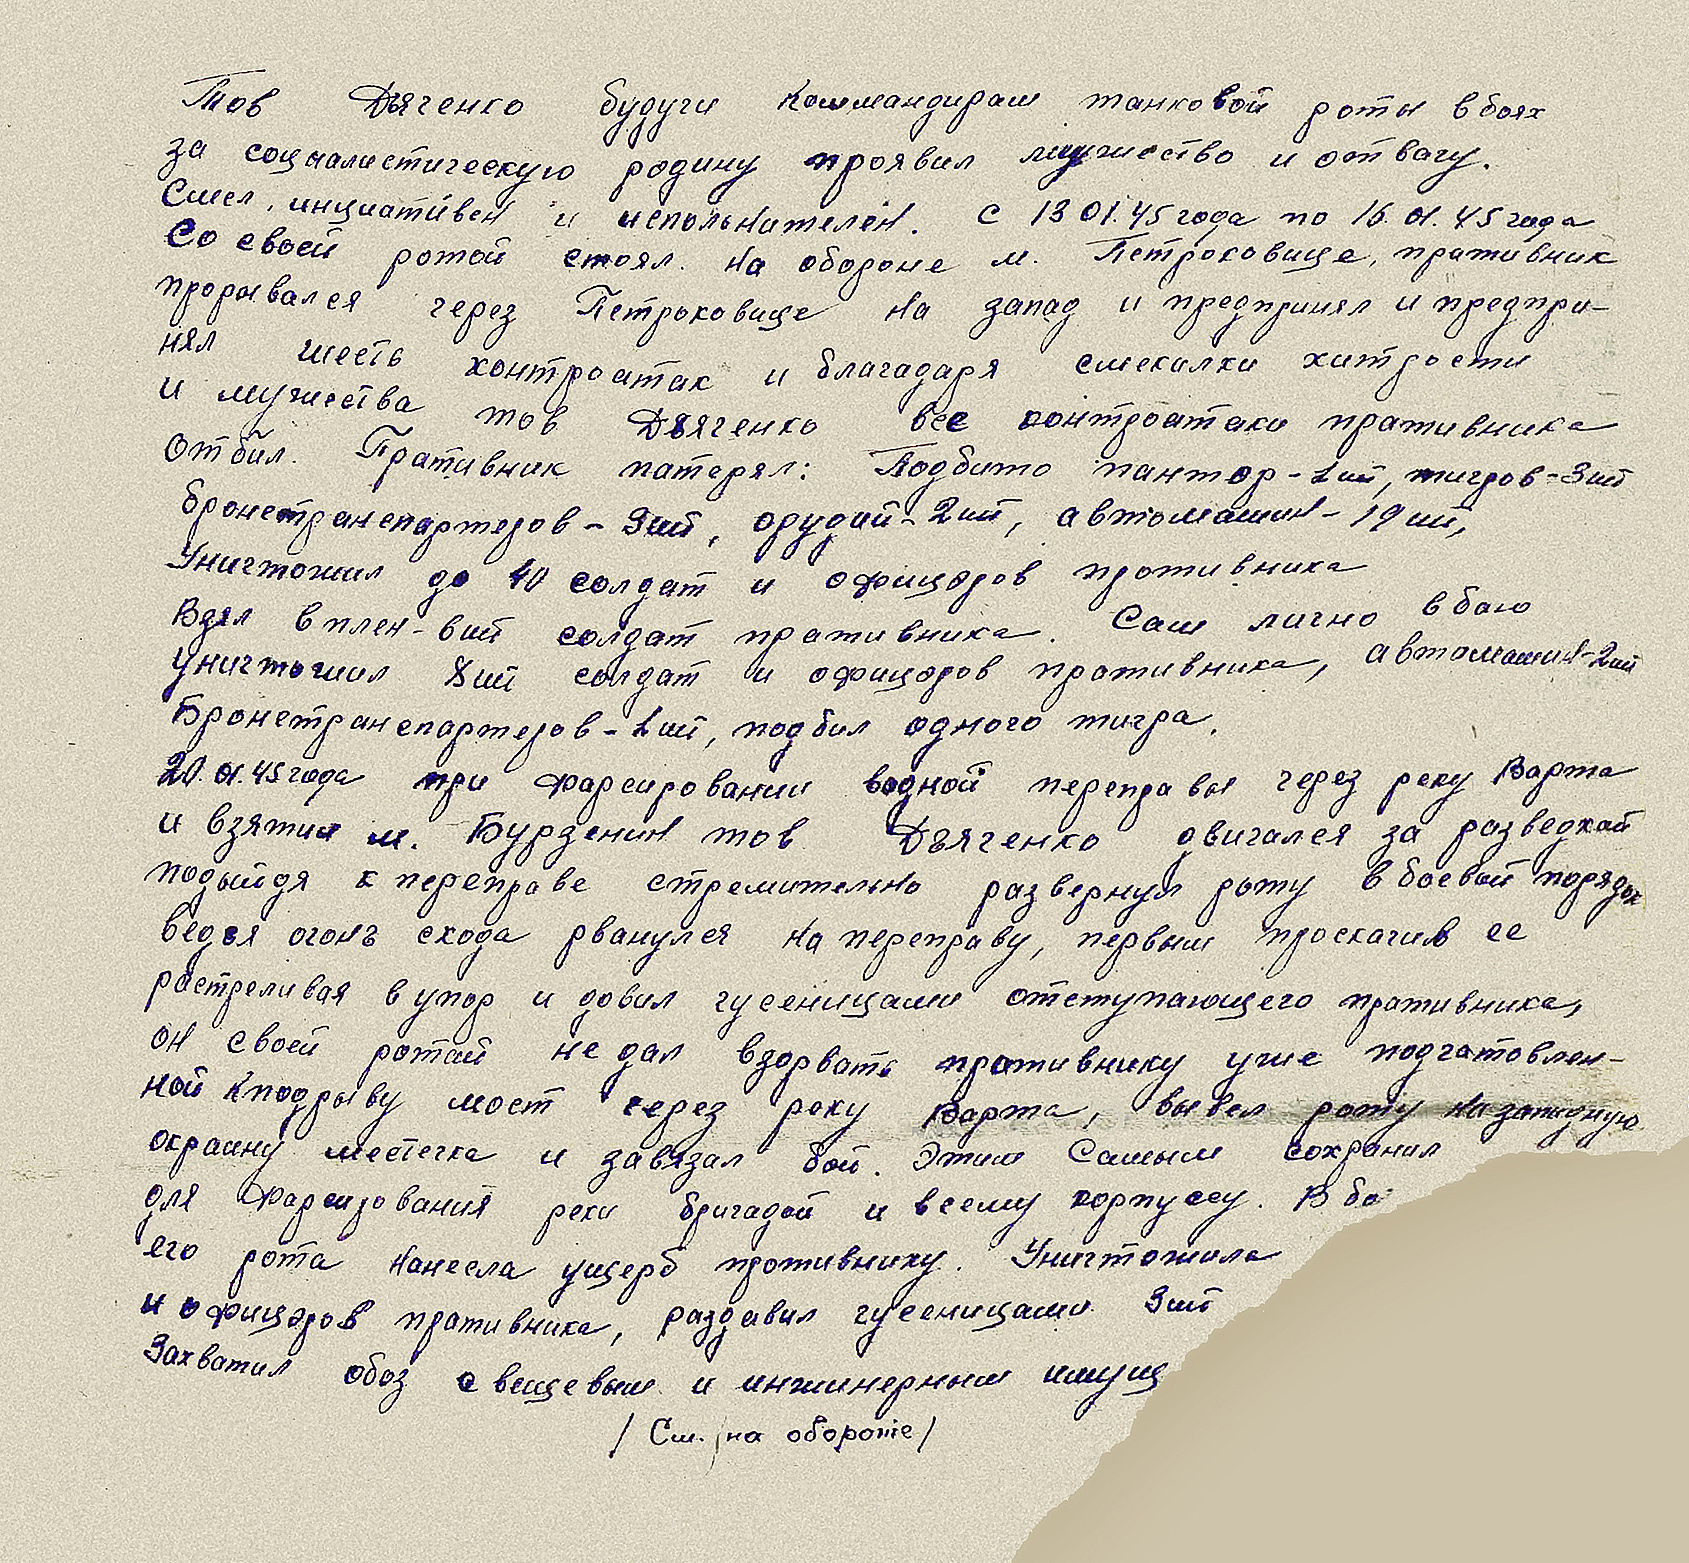 Тов Дъяченко будучи коммандирам танковой роты в боях
за социалистическую родину проявил мужество и отвагу.
Смел, инициативен и испольнителен. С 13 01.45 года по 16.01.45 года
Со своей ротой стоял на обороне м. Петроковище, пративник
прорывался через Петроковище на запад и предпринял и предпри-
нял шесть контроатак и благадаря смекалки хитрости
и мужества тов Дъяченко все контроатаки пративника
отбил. Пративник патерял: Подбито пантер-1шт, тигров-3шт
бронетранспартеров-3шт, орудий-2шт, автомашин-19шт,
Уничтожил до 40 солдат и офицэров противника
Взял в плен-6шт солдат пративника. Сам лично в баю
уничтожил 8шт солдат и офицэров противника, автомашин-2шт
Бронетранспартеров-1шт, подбил одного тигра.
20.01.45 года при фарсировании водной переправы через реку Варта
и взятии м. Бурзенин тов Дъяченко двигался за разведкай
подыйдя к переправе стремительно развернул роту в боевой порядок
ведя огонь схода рванулся на переправу, первым проскачив ее
растреливая в упор и довил гусеницами отступающего пративника,
он своей ротай не дал взорвать пративнику уже подгатовлен-
ной к подрыву мост через реку Варта, вывел роту на западную
окраину местечка и завязал бой. Этим Самым сохранил
для фарсирования реки бригадой и всему корпуссу. В бо
его рота нанесла ущерб противнику. Уничтожила
и офицэров пративника, раздавил гусеницами 3шт
Захватил обоз с вещевым и инжинерным имущ
/ См. на обороте /